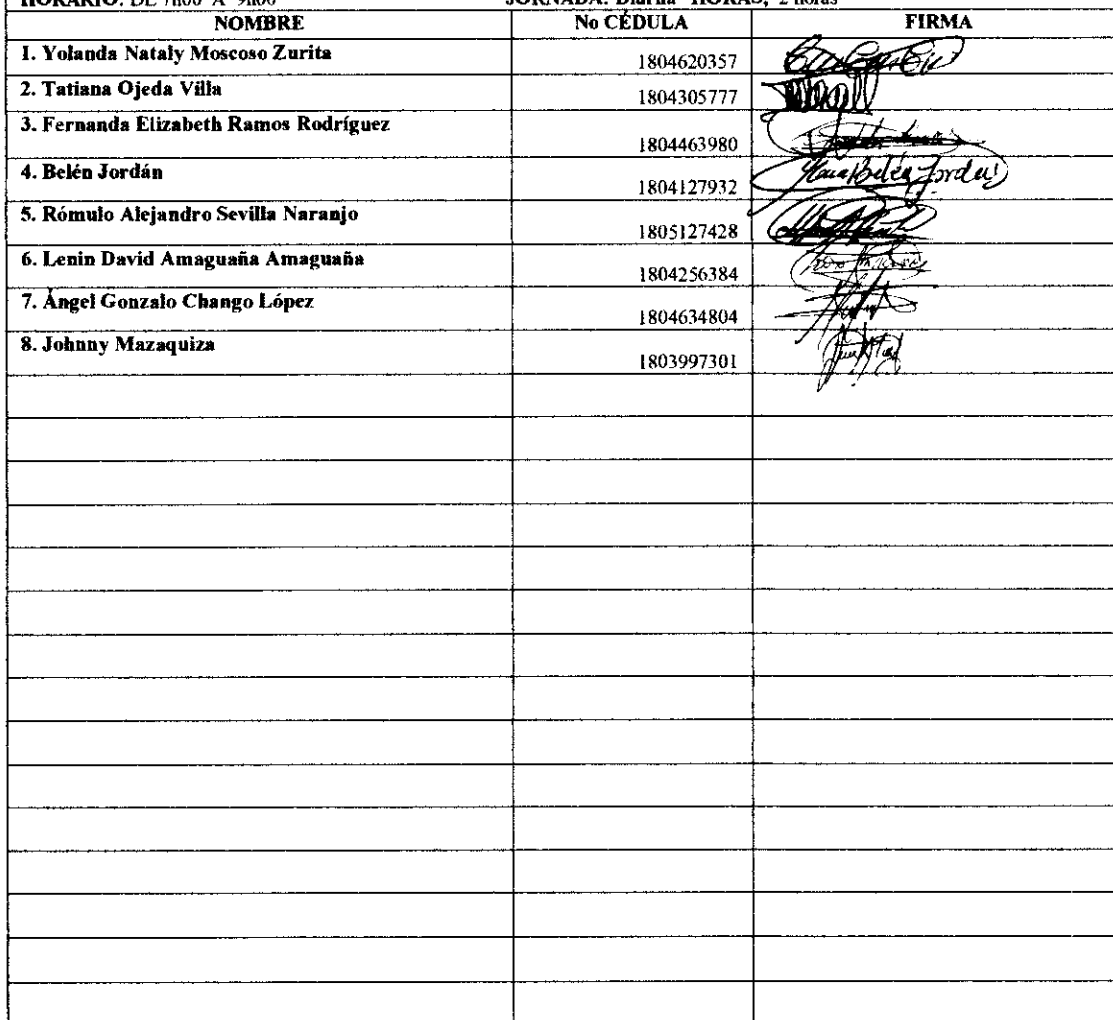 HORARIO: DE 7h00 A 9h00 JORNADA: Diurna HORAS, 2 horas
NOMBRE No CÉDULA FIRMA
1. Yolanda Nataly Moscoso Zurita 1804620357
2. Tatiana Ojeda Villa 1804305777
3. Fernanda Elizabeth Ramos Rodríguez 1804463980
4. Belén Jordán 1804127932 Belén Jordán
5. Rómulo Alejandro Sevilla Naranjo 1805127428
6. Lenin David Amaguaña Amaguaña 1804256384
7. Ángel Gonzalo Chango López 1804634804
8. Johnny Mazaquiza 1803997301